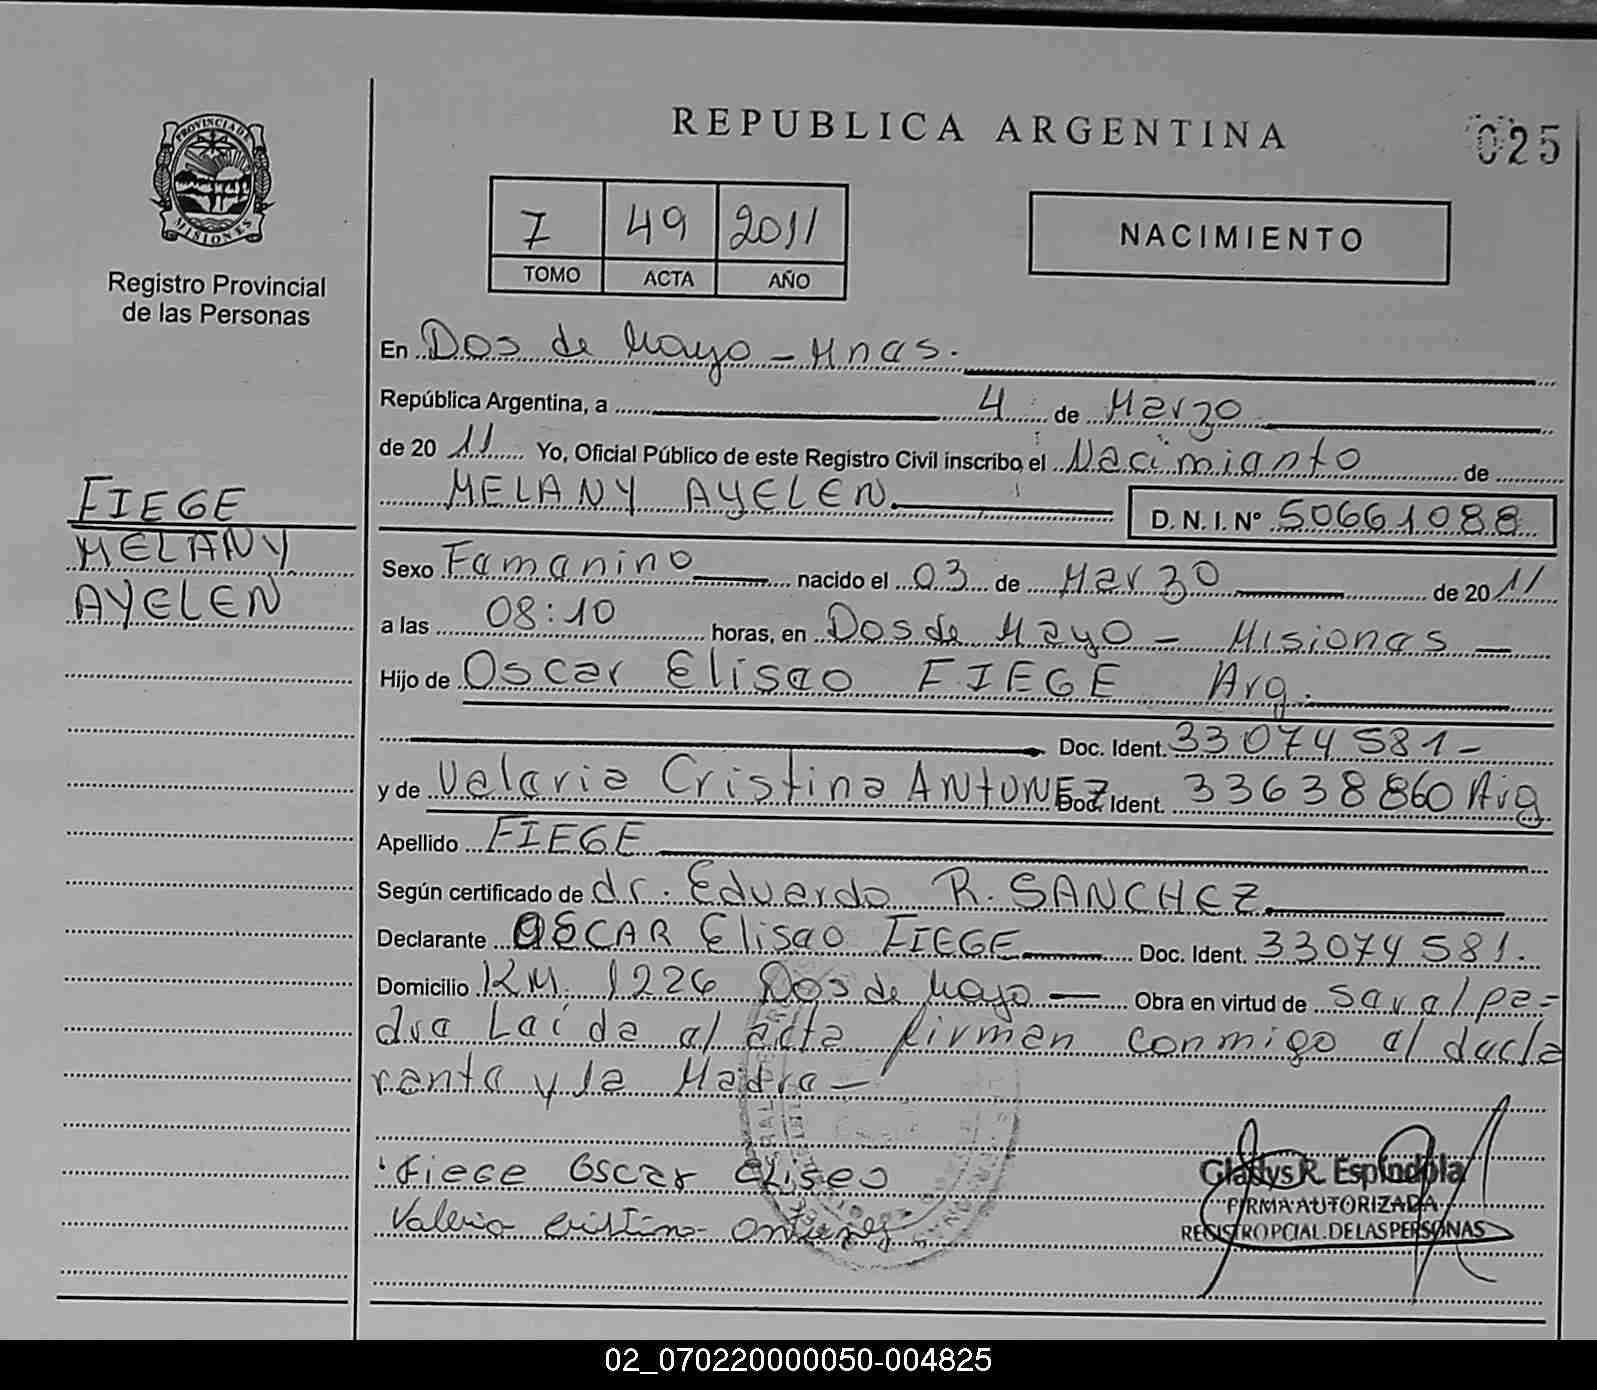 REPUBLICA ARGENTINA
025
PROVINCIA DE
MISIONES
Registro Provincial
de las Personas
7 49 2011
TOMO ACTA AÑO
NACIMIENTO
En Dos de Mayo - Mnas.
República Argentina, a 4 de Marzo
de 2011 Yo, Oficial Público de este Registro Civil inscribo el Nacimianto de
MELANY AYELEN D.N.I. Nº 50661088
FIEGE
MELANY
AYELEN
Sexo Famanino nacido el 03 de Marzo de 2011
a las 08:10 horas, en Dos de Mayo - Misionas
Hijo de Oscar Elisao FIEGE Arg.
Doc. Ident. 33074581-
y de Valaria Cristina ANTUNEZ Doc. Ident. 33638860 Arg
Apellido FIEGE
Según certificado de dr. Eduardo R. SANCHEZ
Declarante OSCAR Elisao FIEGE Doc. Ident. 33074581.
Domicilio KM. 1226 Dos de Mayo Obra en virtud de sar al pa-
dra Laída al acta firman conmigo al dacla
ranta y la Madra -
Fiege Oscar Eliseo
Valeria Cristina Antunez
Gladys R. Espindola
FIRMA AUTORIZADA
REGISTRO PCIAL. DE LAS PERSONAS
02_070220000050-004825